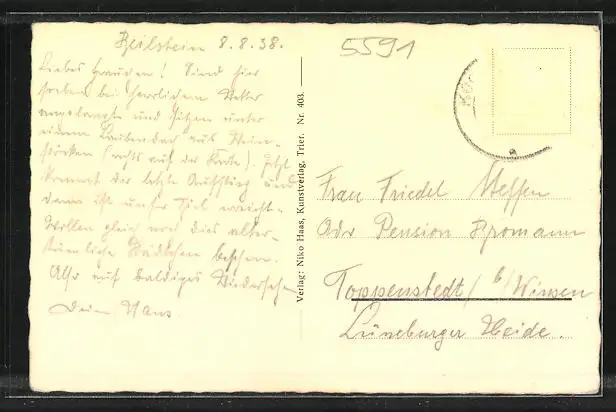 Beilstein 8.8.38.
Liebes Frauchen! Sind hier
soeben bei herrlichem Wetter
angelangt und sitzen unter
einem Laubendach aus Wein-
stöcken (rechts auf der Karte). Jetzt
kommt der letzte Aufstieg und
dann ist unser Ziel erreicht.
Wollen gleich noch dies alter-
tümliche Städtchen besehen.
Also auf baldiges Wiedersehn
Dein Hans
5591
Verlag: Niko Haas, Kunstverlag, Trier. Nr. 403.
Frau Friedel Steffen
Adr Pension
Toppenstedt / b/Winsen
Lüneburger Heide.